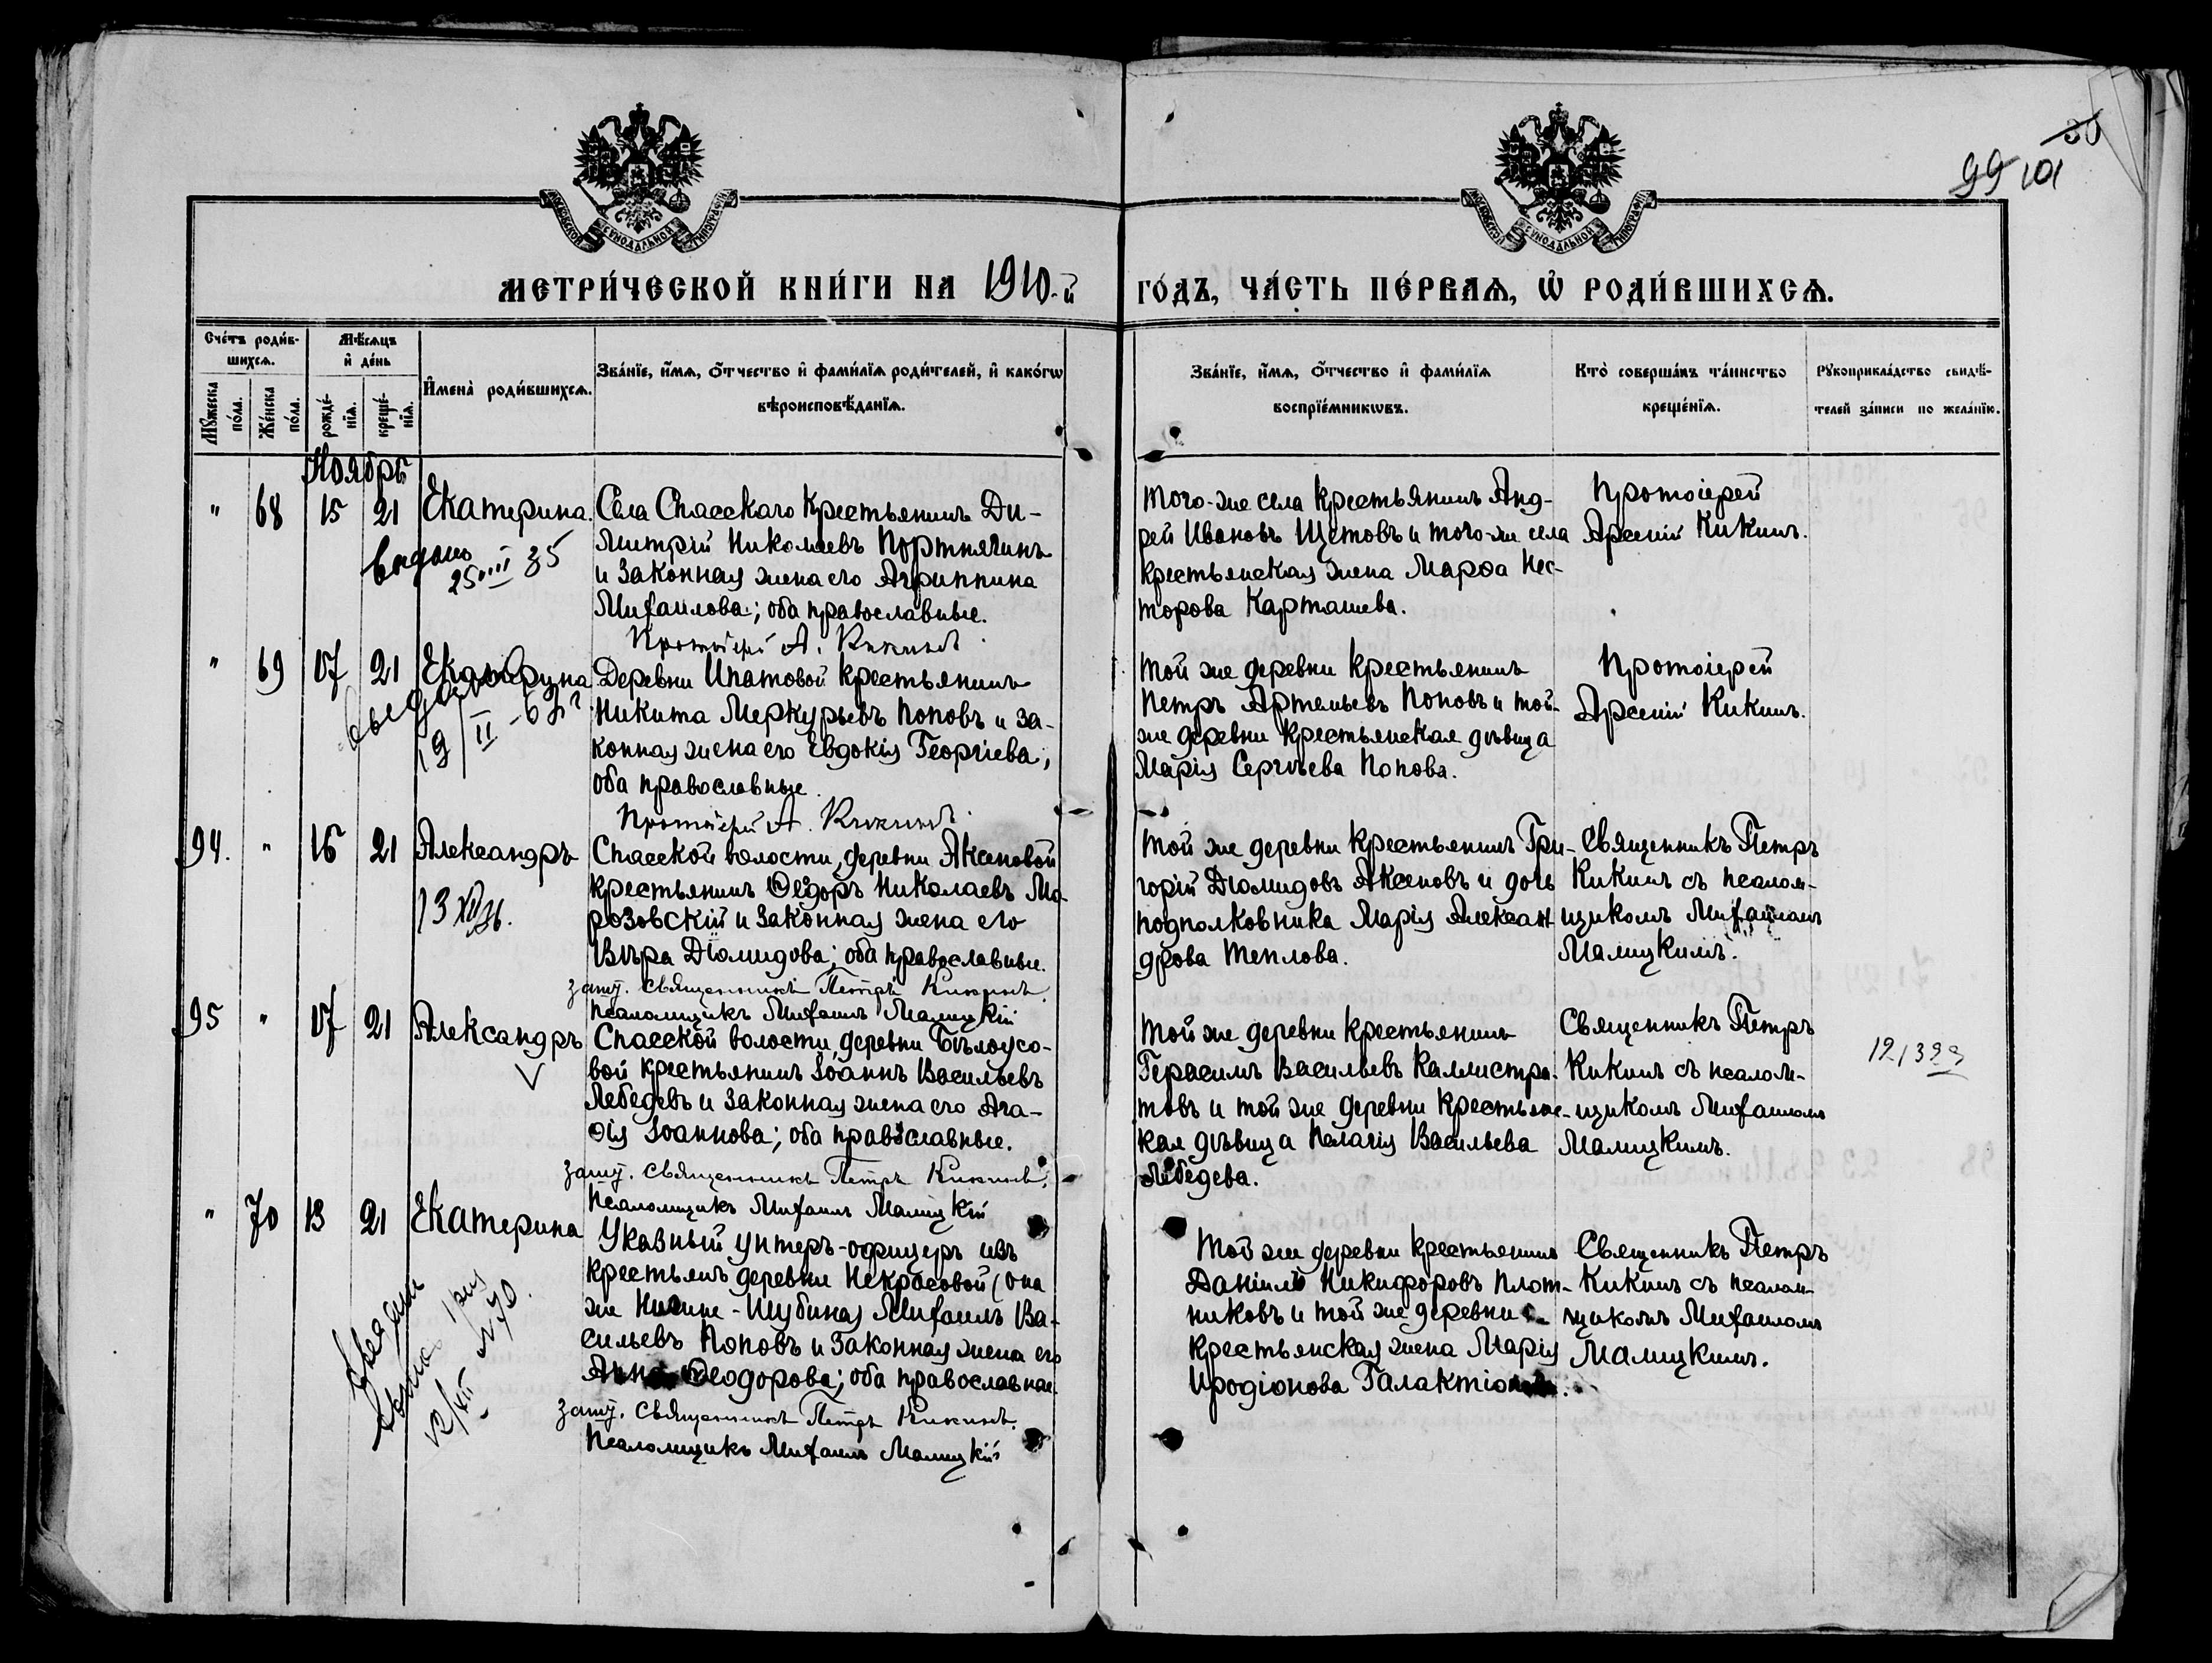 30
99 101
МОСКОВСКОЙ СѴНОДАЛЬНОЙ ТИПОГРАФІИ
МОСКОВСКОЙ СѴНОДАЛЬНОЙ ТИПОГРАФІИ
МЕТРИ́ЧЕСКОЙ КНИ́ГИ НА 1910-й ГО́ДЪ, ЧА́СТЬ ПЕ́РВАЯ, Ѡ҆ РОДИ́ВШИХСЯ.
Сче́тъ роди́в-
шихся.
Мꙋ́жеска по́ла.
Же́нска по́ла.
Мѣ́сяцъ
и҆ де́нь
рожде́-
нїя.
креще́-
нїя.
И҆мена̀ роди́вшихся.
Зва́нїе, и҆́мя, ѻ҆́тчество и҆ фами́лїя роди́телей, и҆ како́гѡ
вѣроисповѣ́данїя.
Зва́нїе, и҆́мя, ѻ҆́тчество и҆ фами́лїя
воспрїе́мникѡвъ.
Кто̀ соверша́лъ та́инство
креще́нїя.
Рꙋкоприкла́дство свидѣ́-
телей за́писи по жела́нїю.
Ноябрь
" 68 15 21 Екатерина.
Села Спасскаго крестьянинъ Ди-
митрій Николаевъ Портнягинъ
и законная жена его Агриппина
Михаилова; оба православные.
Протоіерей А. Кикинъ.
выдано
25 III 35
Того-же села крестьянинъ Анд-
рей Ивановъ Щетовъ и того-же села
крестьянская жена Марѳа Нес-
торова Карташева.
Протоіерей
Арсеній Кикинъ.
" 69 17 21 Екатерина
Деревни Ипатовой крестьянинъ
Никита Меркурьевъ Поповъ и за-
конная жена его Евдокія Георгіева;
оба православные.
Протоіерей А. Кикинъ.
19/II
Той же деревни крестьянинъ
Петръ Артемьевъ Поповъ и той-
же деревни крестьянская дѣвица
Марія Сергѣева Попова.
Протоіерей
Арсеній Кикинъ.
94. " 16 21 Александръ
Спасской волости, деревни Аксеновой
крестьянинъ Ѳеодоръ Николаевъ Мо-
розовскій и законная жена его
Вѣра Діомидова; оба православные.
Священникъ Петръ Кикинъ.
Псаломщикъ Михаилъ Малицкій
Той же деревни крестьянинъ Гри-
горій Діомидовъ Аксеновъ и дочь
подполковника Марія Алексан
дрова Теплова.
Священникъ Петръ
Кикинъ съ псалом-
щикомъ Михаиломъ
Малицкимъ.
95 " 17 21 Александръ
Спасской волости, деревни Бѣлоусо-
вой крестьянинъ Іоаннъ Васильевъ
Лебедевъ и законная жена его Ага-
ѳія Іоаннова; оба православные.
Священникъ Петръ Кикинъ.
Псаломщикъ Михаилъ Малицкій
Той же деревни крестьянинъ
Герасимъ Васильевъ Каллистра-
товъ и той же деревни крестьянс-
кая дѣвица Пелагія Васильева
Лебедева.
Священникъ Петръ
Кикинъ съ псалом-
щикомъ Михаиломъ
Малицкимъ.
" 70 13 21 Екатерина
Указный унтеръ-офицеръ изъ
крестьянъ деревни Некрасовой (она
Михаилъ Ва-
сильевъ Поповъ и законная жена его
Анна Ѳеодорова; оба православные.
Священникъ Петръ Кикинъ.
Псаломщикъ Михаилъ Малицкій
Той же деревни крестьянинъ
Даніилъ Никифоровъ Плот-
никовъ и той же деревни
крестьянская жена Марія
Иродіонова
Священникъ Петръ
Кикинъ съ псалом-
щикомъ Михаиломъ
Малицкимъ.